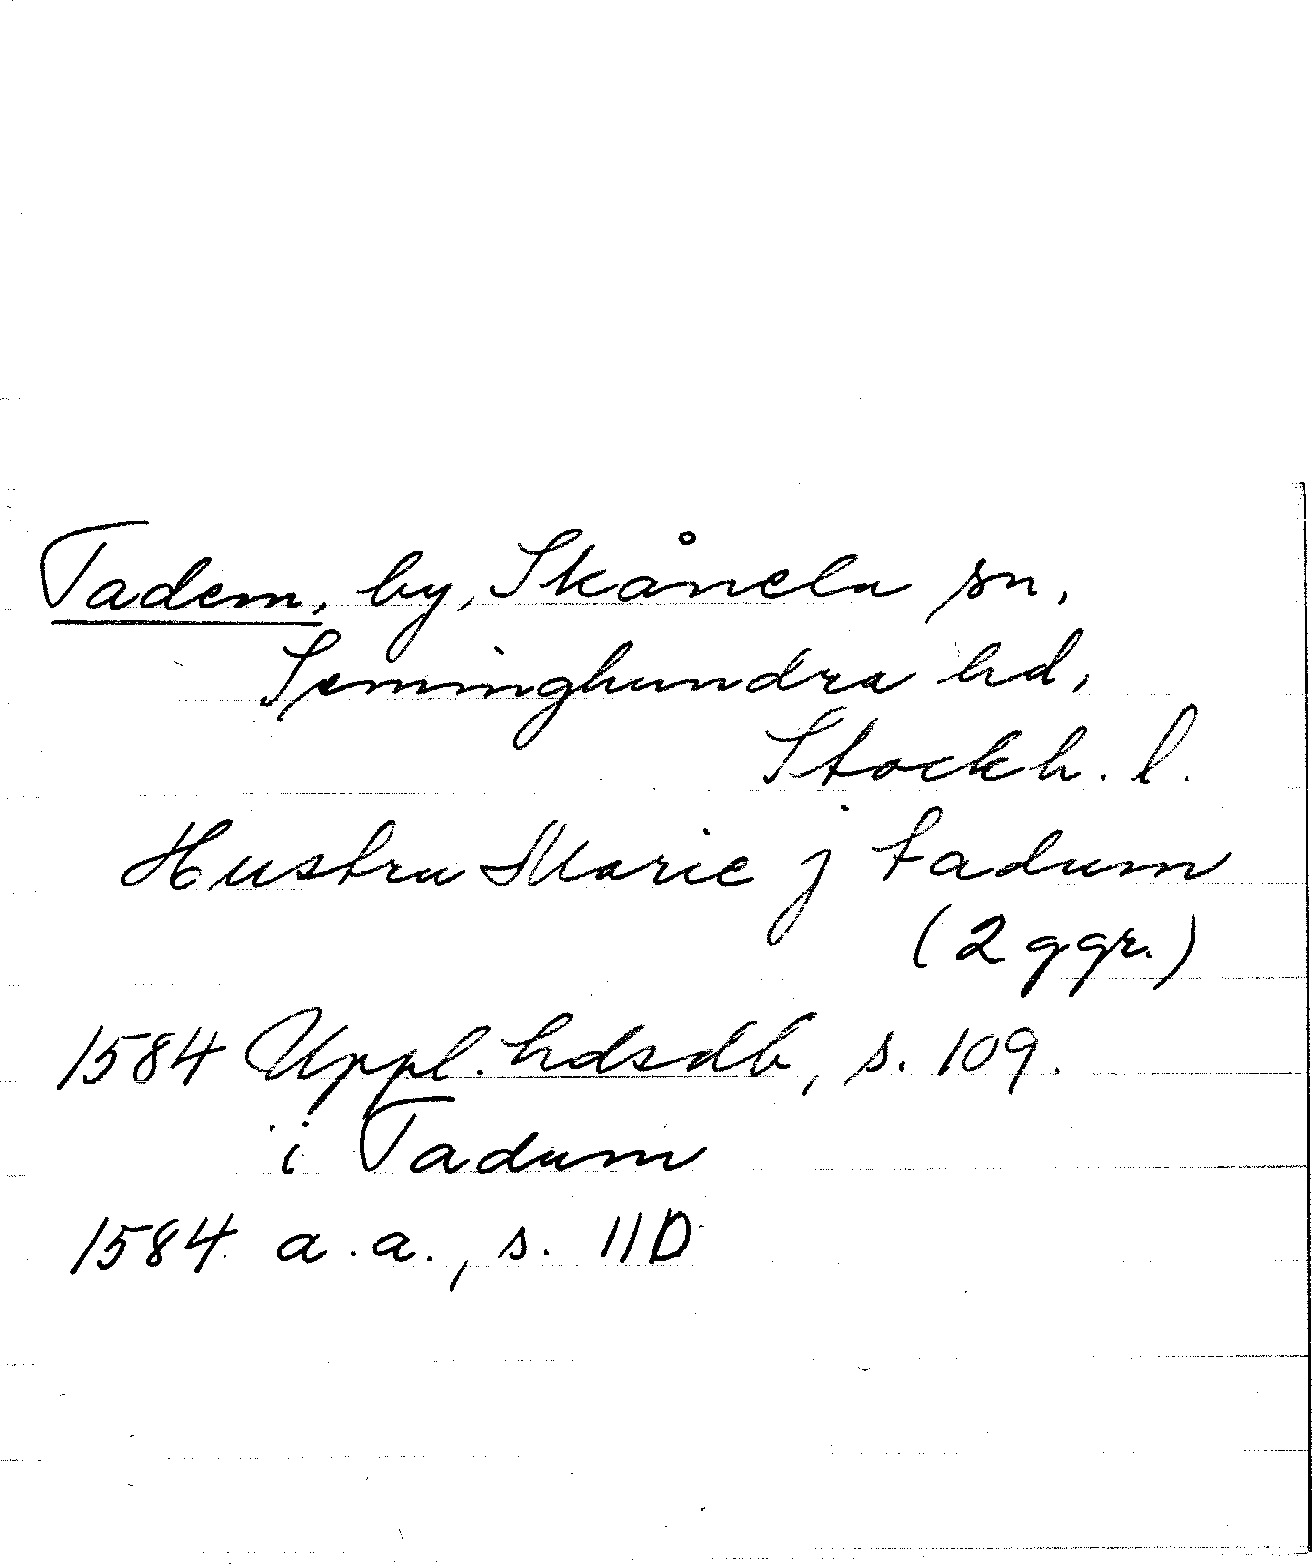 Tadem, by, Skånela sn,
Seminghundra hd,
Stockh. l.
Hustru Marie j tadum
(2 ggr.)
1584 Uppl. hdsdb, s. 109.
i Tadum
1584 a.a., s. 110